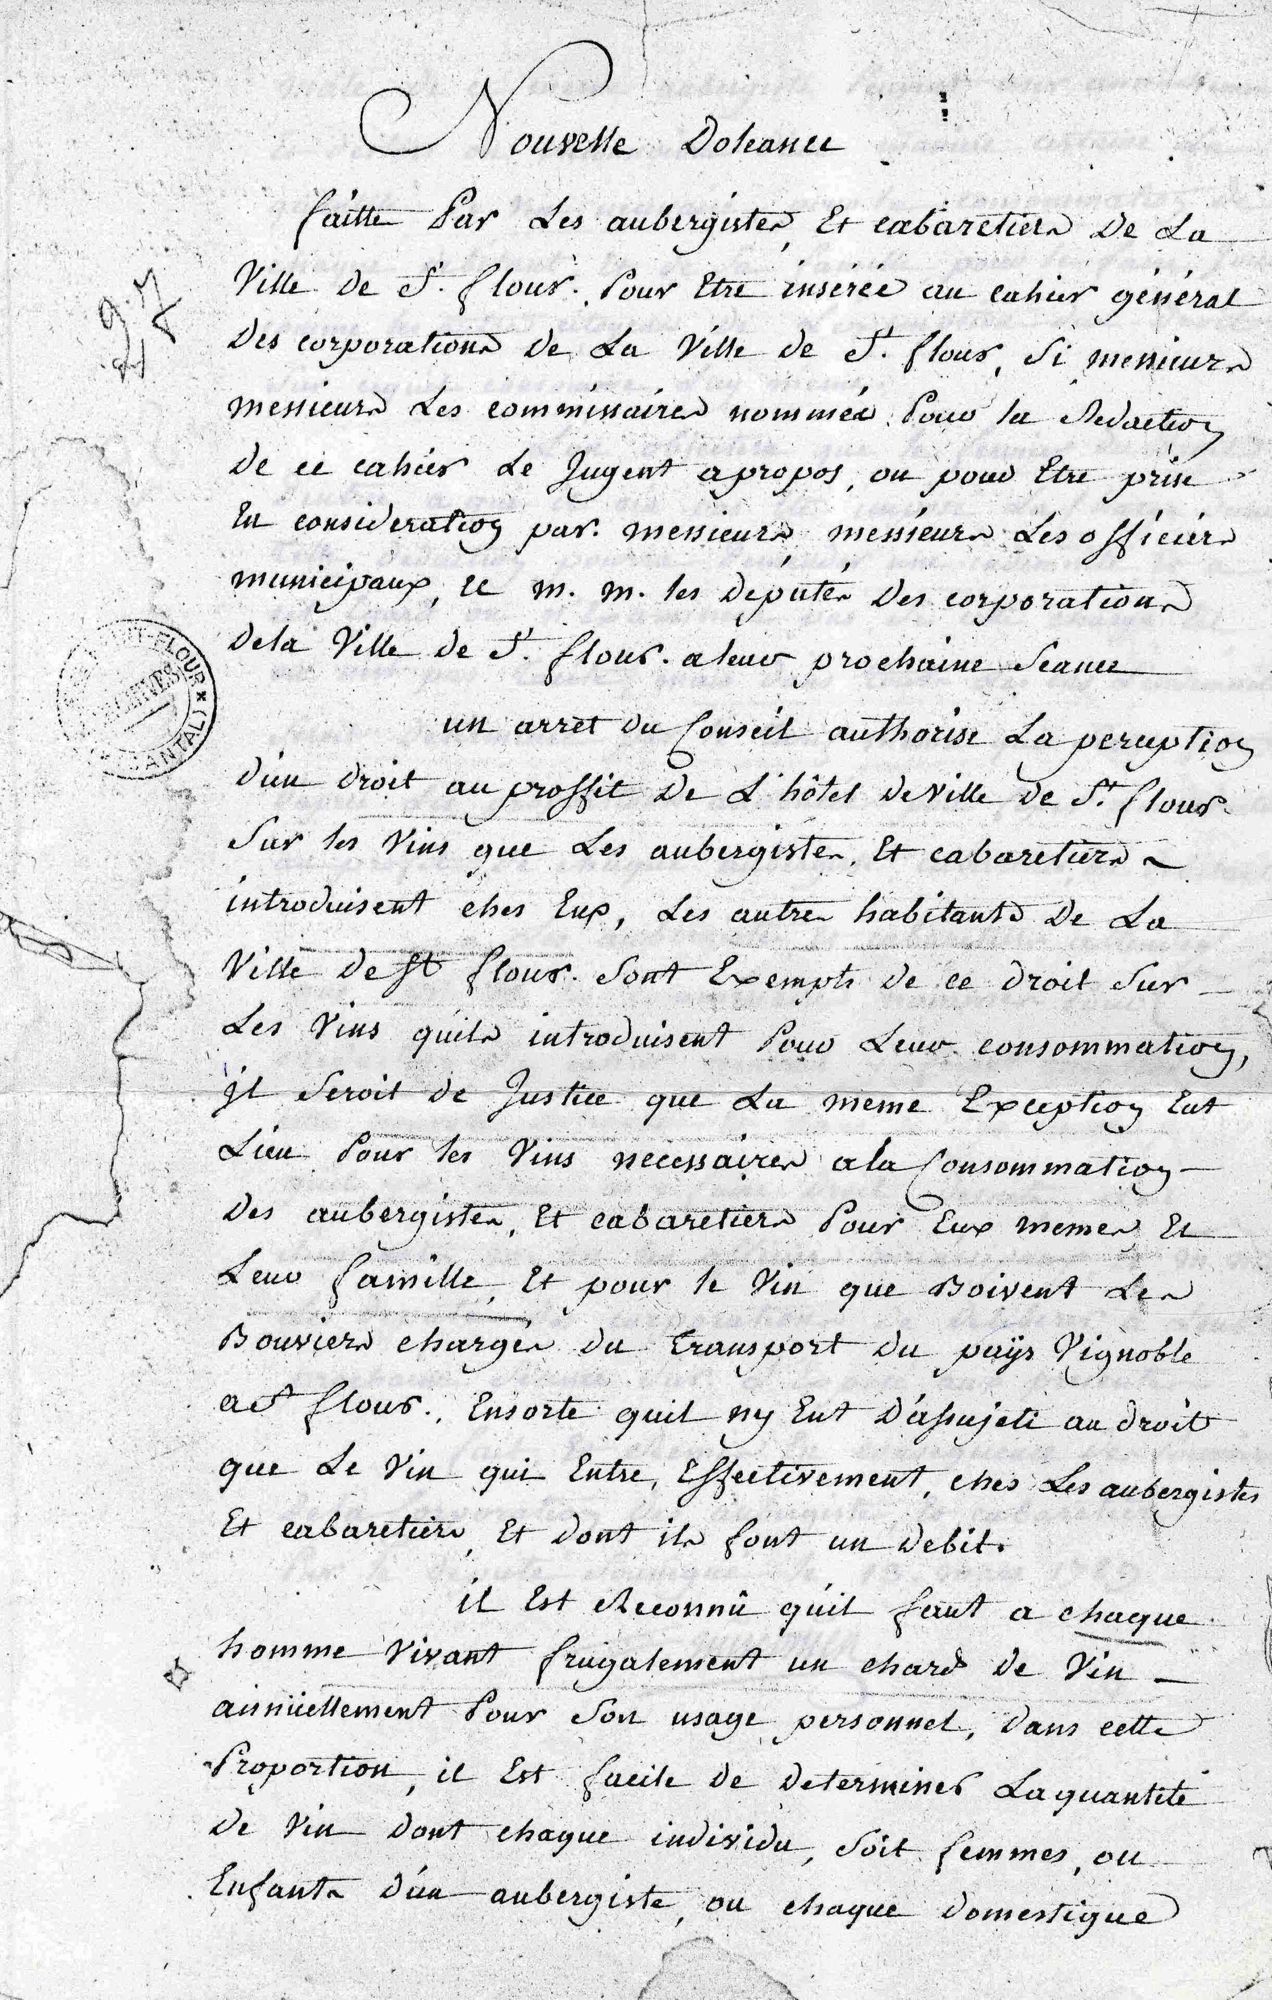 Nouvelle Doleance
faitte Par Les aubergistes, Et cabaretiers De La
Ville De St. flour. Pour Etre insérée au cahier général
Des corporations De La Ville de St. flour, Si messieurs
messieurs Les commissaires nommés Pour la Redaction
De ce cahier Le Jugent apropos, ou pour Etre prise
En consideration par. messieurs messieurs Les officiers
municipaux, Et m. m. les Députés Des corporations
Dela Ville De St. flour. a leur prochaine Seance
27
SAINT-FLOUR * (CANTAL)
ARCHIVES
un arret Du Conseil authorise La perception
D'un Droit au proffit De L'hôtel De Ville De St. flour.
Sur les Vins que Les aubergistes, Et cabaretiers
introduisent ches Eux, Les autres habitants De La
Ville De St flour. Sont Exempts De ce Droit Sur
Les Vins quils introduisent Pour Leur consommation,
il Seroit de Justice que La meme Exception Eut
Lieu Pour les Vins necessaires a la Consommation
Des aubergistes, Et cabaretiers Pour Eux memes Et
Leur famille, Et pour le Vin que Boivent Les
Bouviers chargés Du Transport Du païs Vignoble
a St flour., Ensorte quil ny Eut D'assujeti au Droit
que Le Vin qui Entre, Effectivement, ches Les aubergistes
Et cabaretiers, Et Dont ils font un Debit.
il Est Reconnû qu'il faut a chaque
homme Vivant frugalement un chard De Vin
annüellement Pour Son usage personnel, Dans cette
Proportion, il Est facile De Determiner La quantité
De Vin Dont chaque individu, Soit femmes, ou
Enfants D'un aubergiste, ou chaque Domestique